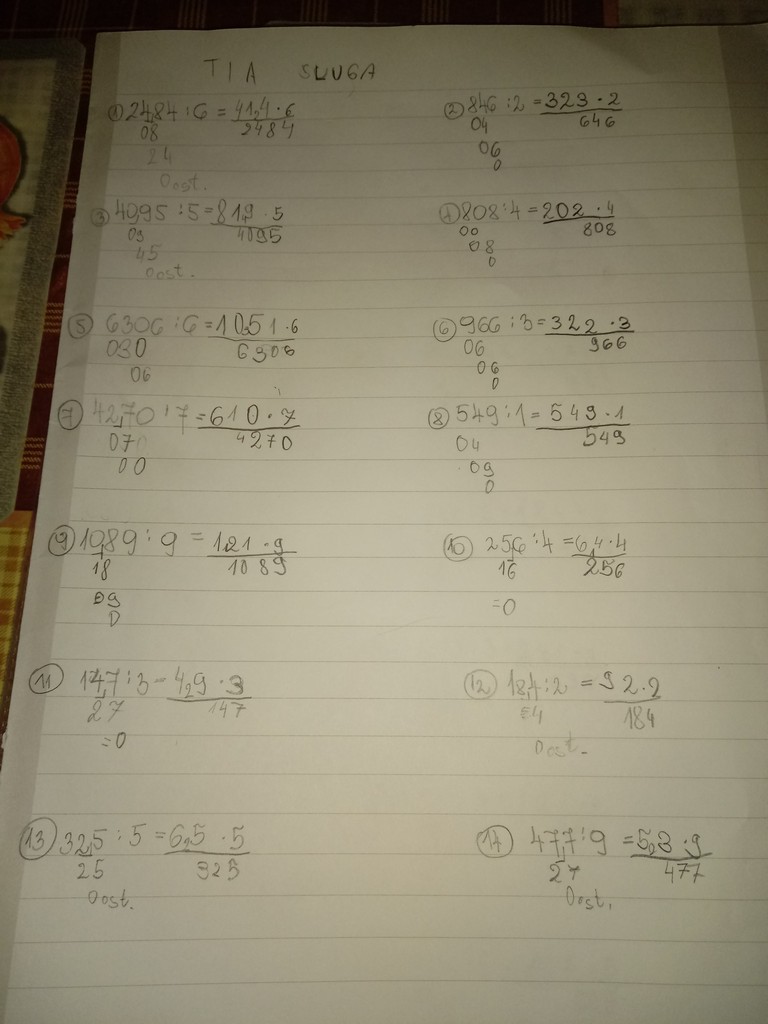 TIA SLUGA
① 2484 : 6 = 41,4 · 6
2484
08
24
0ost.
② 846 : 2 = 323 · 2
646
04
06
0
③ 4095 : 5 = 819 · 5
4095
09
45
0ost.
④ 808 : 4 = 202 · 4
808
00
08
0
⑤ 6306 : 6 = 1051 · 6
6306
030
06
⑥ 966 : 3 = 322 · 3
966
06
06
0
⑦ 4270 : 7 = 610 · 7
4270
07
00
⑧ 549 : 1 = 549 · 1
549
04
09
0
⑨ 1089 : 9 = 121 · 9
1089
18
09
0
⑩ 256 : 4 = 6,4 · 4
256
16
=0
⑪ 147 : 3 = 4,9 · 3
147
27
=0
⑫ 184 : 2 = 92 · 2
184
=4
0ost.
⑬ 325 : 5 = 6,5 · 5
325
25
0ost.
⑭ 477 : 9 = 5,3 · 9
477
27
0ost.